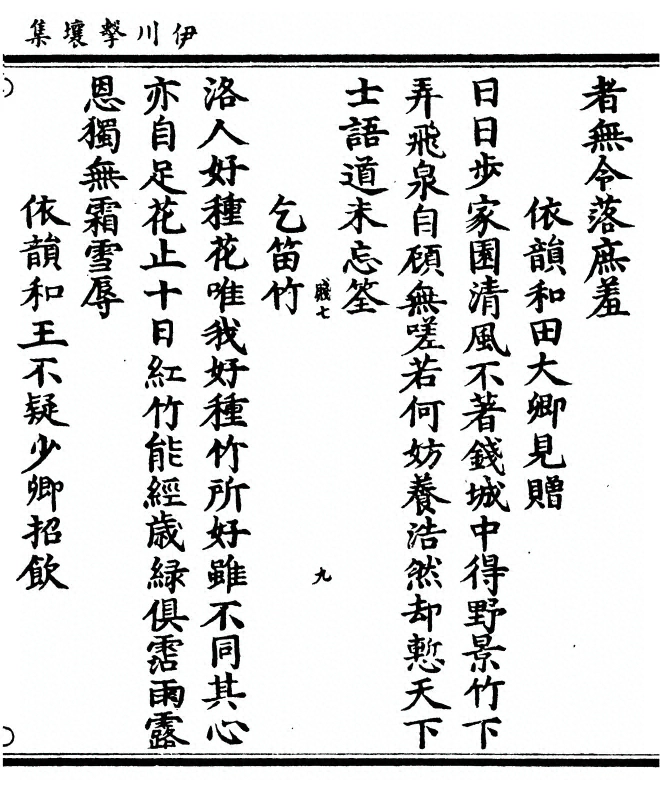 伊川擊壤集
者無令落庶羞
依韻和田大卿見贈
日日步家園清風不著錢城中得野景竹下
弄飛泉自顧無嗟若何妨養浩然却慙天下
士語道未忘筌
賤七
九
乞笛竹
洛人好種花唯我好種竹所好雖不同其心
亦自足花止十日紅竹能經歲綠俱霑雨露
恩獨無霜雪辱
依韻和王不疑少卿招飲